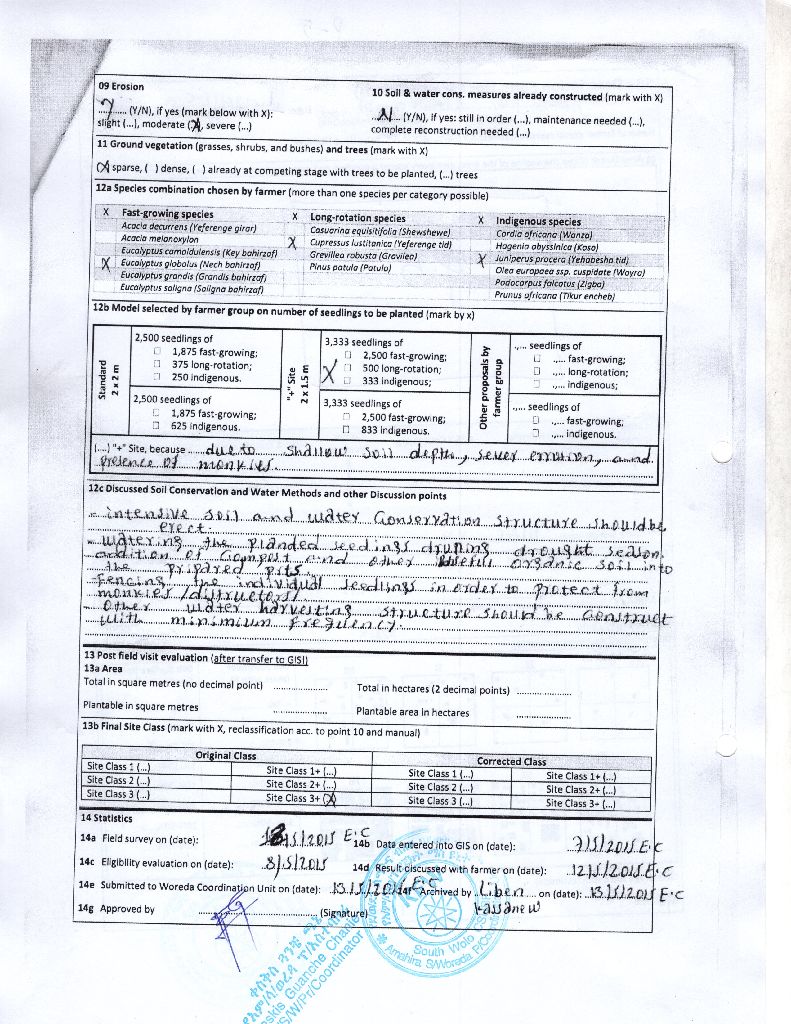 09 Erosion
10 Soil & water cons. measures already constructed (mark with X)
Y (Y/N), if yes (mark below with X):
slight (...), moderate (X), severe (...)
N (Y/N), if yes: still in order (...), maintenance needed (...),
complete reconstruction needed (...)
11 Ground vegetation (grasses, shrubs, and bushes) and trees (mark with X)
(X) sparse, ( ) dense, ( ) already at competing stage with trees to be planted, (...) trees
12a Species combination chosen by farmer (more than one species per category possible)
X Fast-growing species
Acacia decurrens (Yeferenge girar)
Acacia melanoxylon
Eucalyptus camaldulensis (Key bahirzaf)
X Eucalyptus globolus (Nech bahirzaf)
Eucalyptus grandis (Grandis bahirzaf)
Eucalyptus saligna (Saligna bahirzaf)
X Long-rotation species
Casuarina equisitifolia (Shewshewe)
X Cupressus lustitanica (Yeferenge tid)
Grevillea robusta (Gravilea)
Pinus patula (Patula)
X Indigenous species
Cordia africana (Wanza)
Hagenia abyssinica (Koso)
X Juniperus procera (Yehabesha tid)
Olea europaea ssp. cuspidate (Wayra)
Podocarpus falcatus (Zigba)
Prunus africana (Tikur encheb)
12b Model selected by farmer group on number of seedlings to be planted (mark by x)
Standard
2 x 2 m
2,500 seedlings of
1,875 fast-growing;
375 long-rotation;
250 indigenous.
2,500 seedlings of
1,875 fast-growing;
625 indigenous.
"+" Site
2 x 1.5 m
3,333 seedlings of
2,500 fast-growing;
X 500 long-rotation;
333 indigenous;
3,333 seedlings of
2,500 fast-growing;
833 indigenous.
Other proposals by
farmer group
..... seedlings of
..... fast-growing;
..... long-rotation;
..... indigenous;
..... seedlings of
..... fast-growing;
..... indigenous.
(...) "+" Site, because due to shallow soil depth, sever errotion, and
presence of monkies
12c Discussed Soil Conservation and Water Methods and other Discussion points
- intensive soil and water Conservation structure should be
erect.
- watering the planded seedings druning drought season.
addition of compost and other useful organic soil into
the pripared pits.
- Fencing the individual seedlings in order to protect from
monkies /distructors/
- Other water harvesting structure should be construct
with minimium frequency.
13 Post field visit evaluation (after transfer to GIS!)
13a Area
Total in square metres (no decimal point) ..................
Total in hectares (2 decimal points) ..................
Plantable in square metres ..................
Plantable area in hectares ..................
13b Final Site Class (mark with X, reclassification acc. to point 10 and manual)
Original Class
Corrected Class
Site Class 1 (...) Site Class 1+ (...) Site Class 1 (...) Site Class 1+ (...)
Site Class 2 (...) Site Class 2+ (...) Site Class 2 (...) Site Class 2+ (...)
Site Class 3 (...) Site Class 3+ (X) Site Class 3 (...) Site Class 3+ (...)
14 Statistics
14a Field survey on (date): /5/2015 E.C
14b Data entered into GIS on (date): 7/5/2015 E.C
14c Eligibility evaluation on (date): 8/5/2015
14d Result discussed with farmer on (date): 12/5/2015 E.C
14e Submitted to Woreda Coordination Unit on (date): 13/5/2015 E.C
14f Archived by Liben Kassanew on (date): 13/5/2015 E.C
14g Approved by .................. (Signature)
South Wolo
Guanche Chanie
S/W/Pr/Coordinator